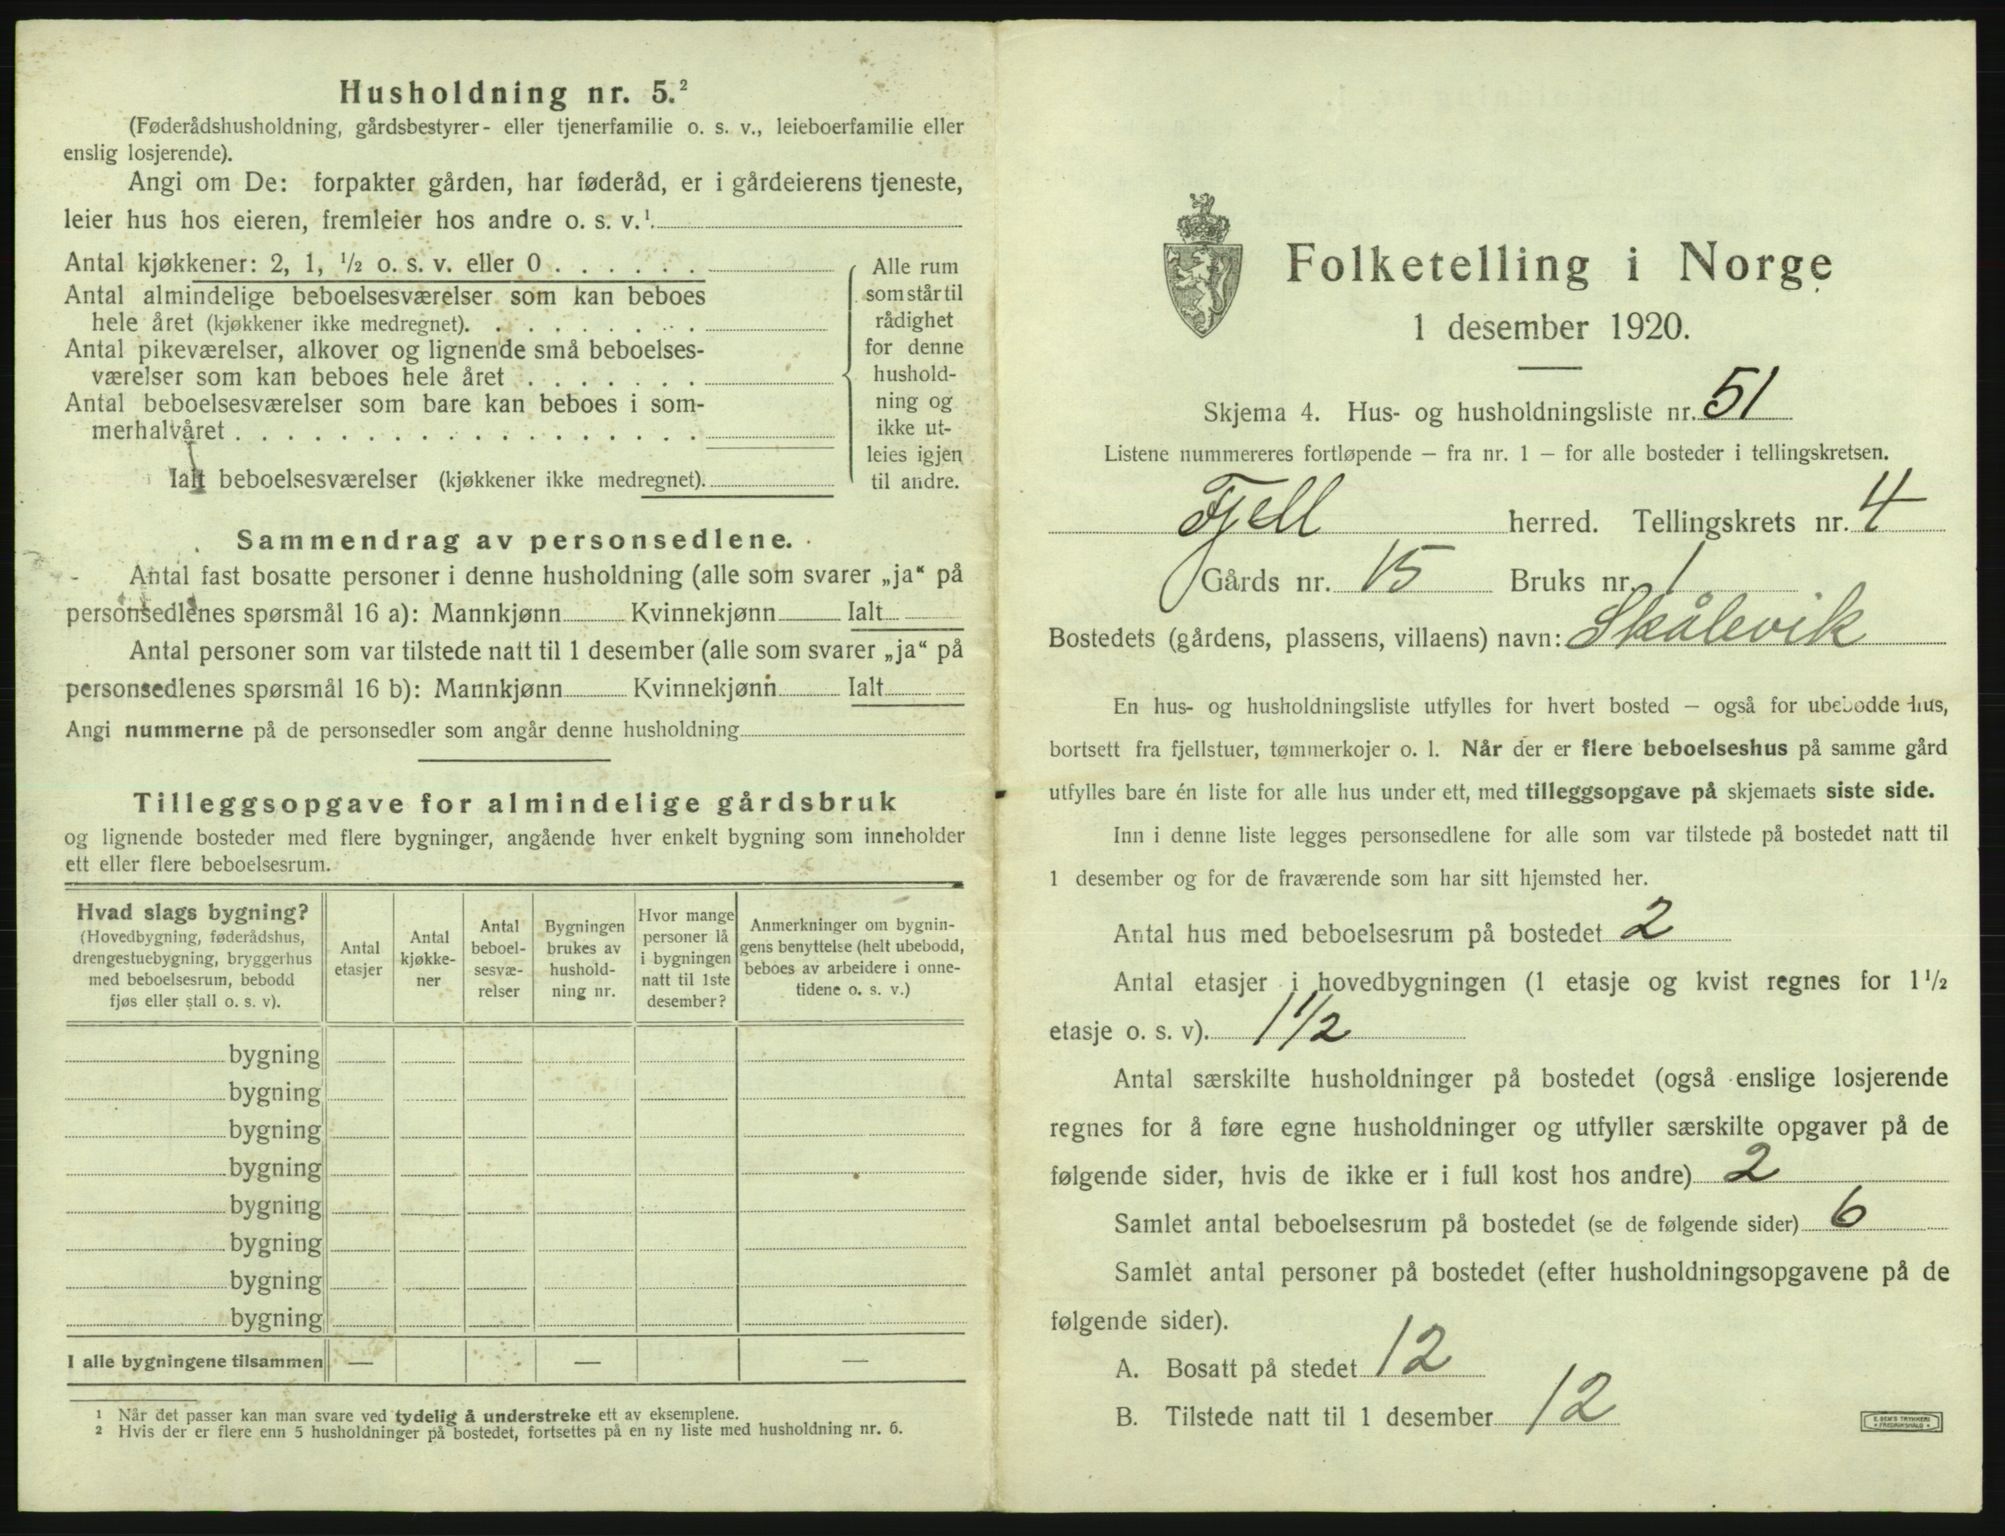 Husholdning nr. 5.²
(Føderådshusholdning, gårdsbestyrer- eller tjenerfamilie o. s. v., leieboerfamilie eller
enslig losjerende).
Angi om De: forpakter gården, har føderåd, er i gårdeierens tjeneste,
leier hus hos eieren, fremleier hos andre o. s. v.¹.
Antal kjøkkener: 2, 1, ½ o. s. v. eller 0 . . . . . .
Antal almindelige beboelsesværelser som kan beboes
hele året (kjøkkener ikke medregnet). . . . . . . . .
Antal pikeværelser, alkover og lignende små beboelses-
værelser som kan beboes hele året . . . . . . .
Antal beboelsesværelser som bare kan beboes i som-
merhalvåret . . . . . . . . . . . . . . . . . .
Ialt beboelsesværelser (kjøkkener ikke medregnet).
Alle rum
som står til
rådighet
for denne
hushold-
ning og
ikke ut-
leies igjen
til andre.
Sammendrag av personsedlene.
Antal fast bosatte personer i denne husholdning (alle som svarer „ja“ på
personsedlenes spørsmål 16 a): Mannkjønn Kvinnekjønn Ialt
Antal personer som var tilstede natt til 1 desember (alle som svarer „ja“ på
personsedlenes spørsmål 16 b): Mannkjønn Kvinnekjønn Ialt
Angi nummerne på de personsedler som angår denne husholdning
Tilleggsopgave for almindelige gårdsbruk
og lignende bosteder med flere bygninger, angående hver enkelt bygning som inneholder
ett eller flere beboelsesrum.
Hvad slags bygning?
(Hovedbygning, føderådshus,
drengestuebygning, bryggerhus
med beboelsesrum, bebodd
fjøs eller stall o. s. v).
Antal
etasjer
Antal
kjøkke-
ner
Antal
beboel-
sesvæ-
relser
Bygningen
brukes av
hushold-
ning nr.
Hvor mange
personer lå
i bygningen
natt til 1ste
desember?
Anmerkninger om bygnin-
gens benyttelse (helt ubebodd,
beboes av arbeidere i onne-
tidene o. s. v.)
bygning
bygning
bygning
bygning
bygning
bygning
bygning
bygning
I alle bygningene tilsammen — — —
¹ Når det passer kan man svare ved tydelig å understreke ett av eksemplene.
² Hvis der er flere enn 5 husholdninger på bostedet, fortsettes på en ny liste med husholdning nr. 6.
Folketelling i Norge
1 desember 1920.
Skjema 4. Hus- og husholdningsliste nr. 51
Listene nummereres fortløpende – fra nr. 1 – for alle bosteder i tellingskretsen.
Fjell herred. Tellingskrets nr. 4
Gårds nr. 15 Bruks nr. 1
Bostedets (gårdens, plassens, villaens) navn: Skålevik
En hus- og husholdningsliste utfylles for hvert bosted – også for ubebodde hus,
bortsett fra fjellstuer, tømmerkojer o. l. Når der er flere beboelseshus på samme gård
utfylles bare én liste for alle hus under ett, med tilleggsopgave på skjemaets siste side.
Inn i denne liste legges personsedlene for alle som var tilstede på bostedet natt til
1 desember og for de fraværende som har sitt hjemsted her.
Antal hus med beboelsesrum på bostedet 2
Antal etasjer i hovedbygningen (1 etasje og kvist regnes for 1½
etasje o. s. v). 1½
Antal særskilte husholdninger på bostedet (også enslige losjerende
regnes for å føre egne husholdninger og utfyller særskilte opgaver på de
følgende sider, hvis de ikke er i full kost hos andre) 2
Samlet antal beboelsesrum på bostedet (se de følgende sider) 6
Samlet antal personer på bostedet (efter husholdningsopgavene på de
følgende sider).
A. Bosatt på stedet 12
B. Tilstede natt til 1 desember 12
E. SEM'S TRYKKERI
FREDRIKSHALD